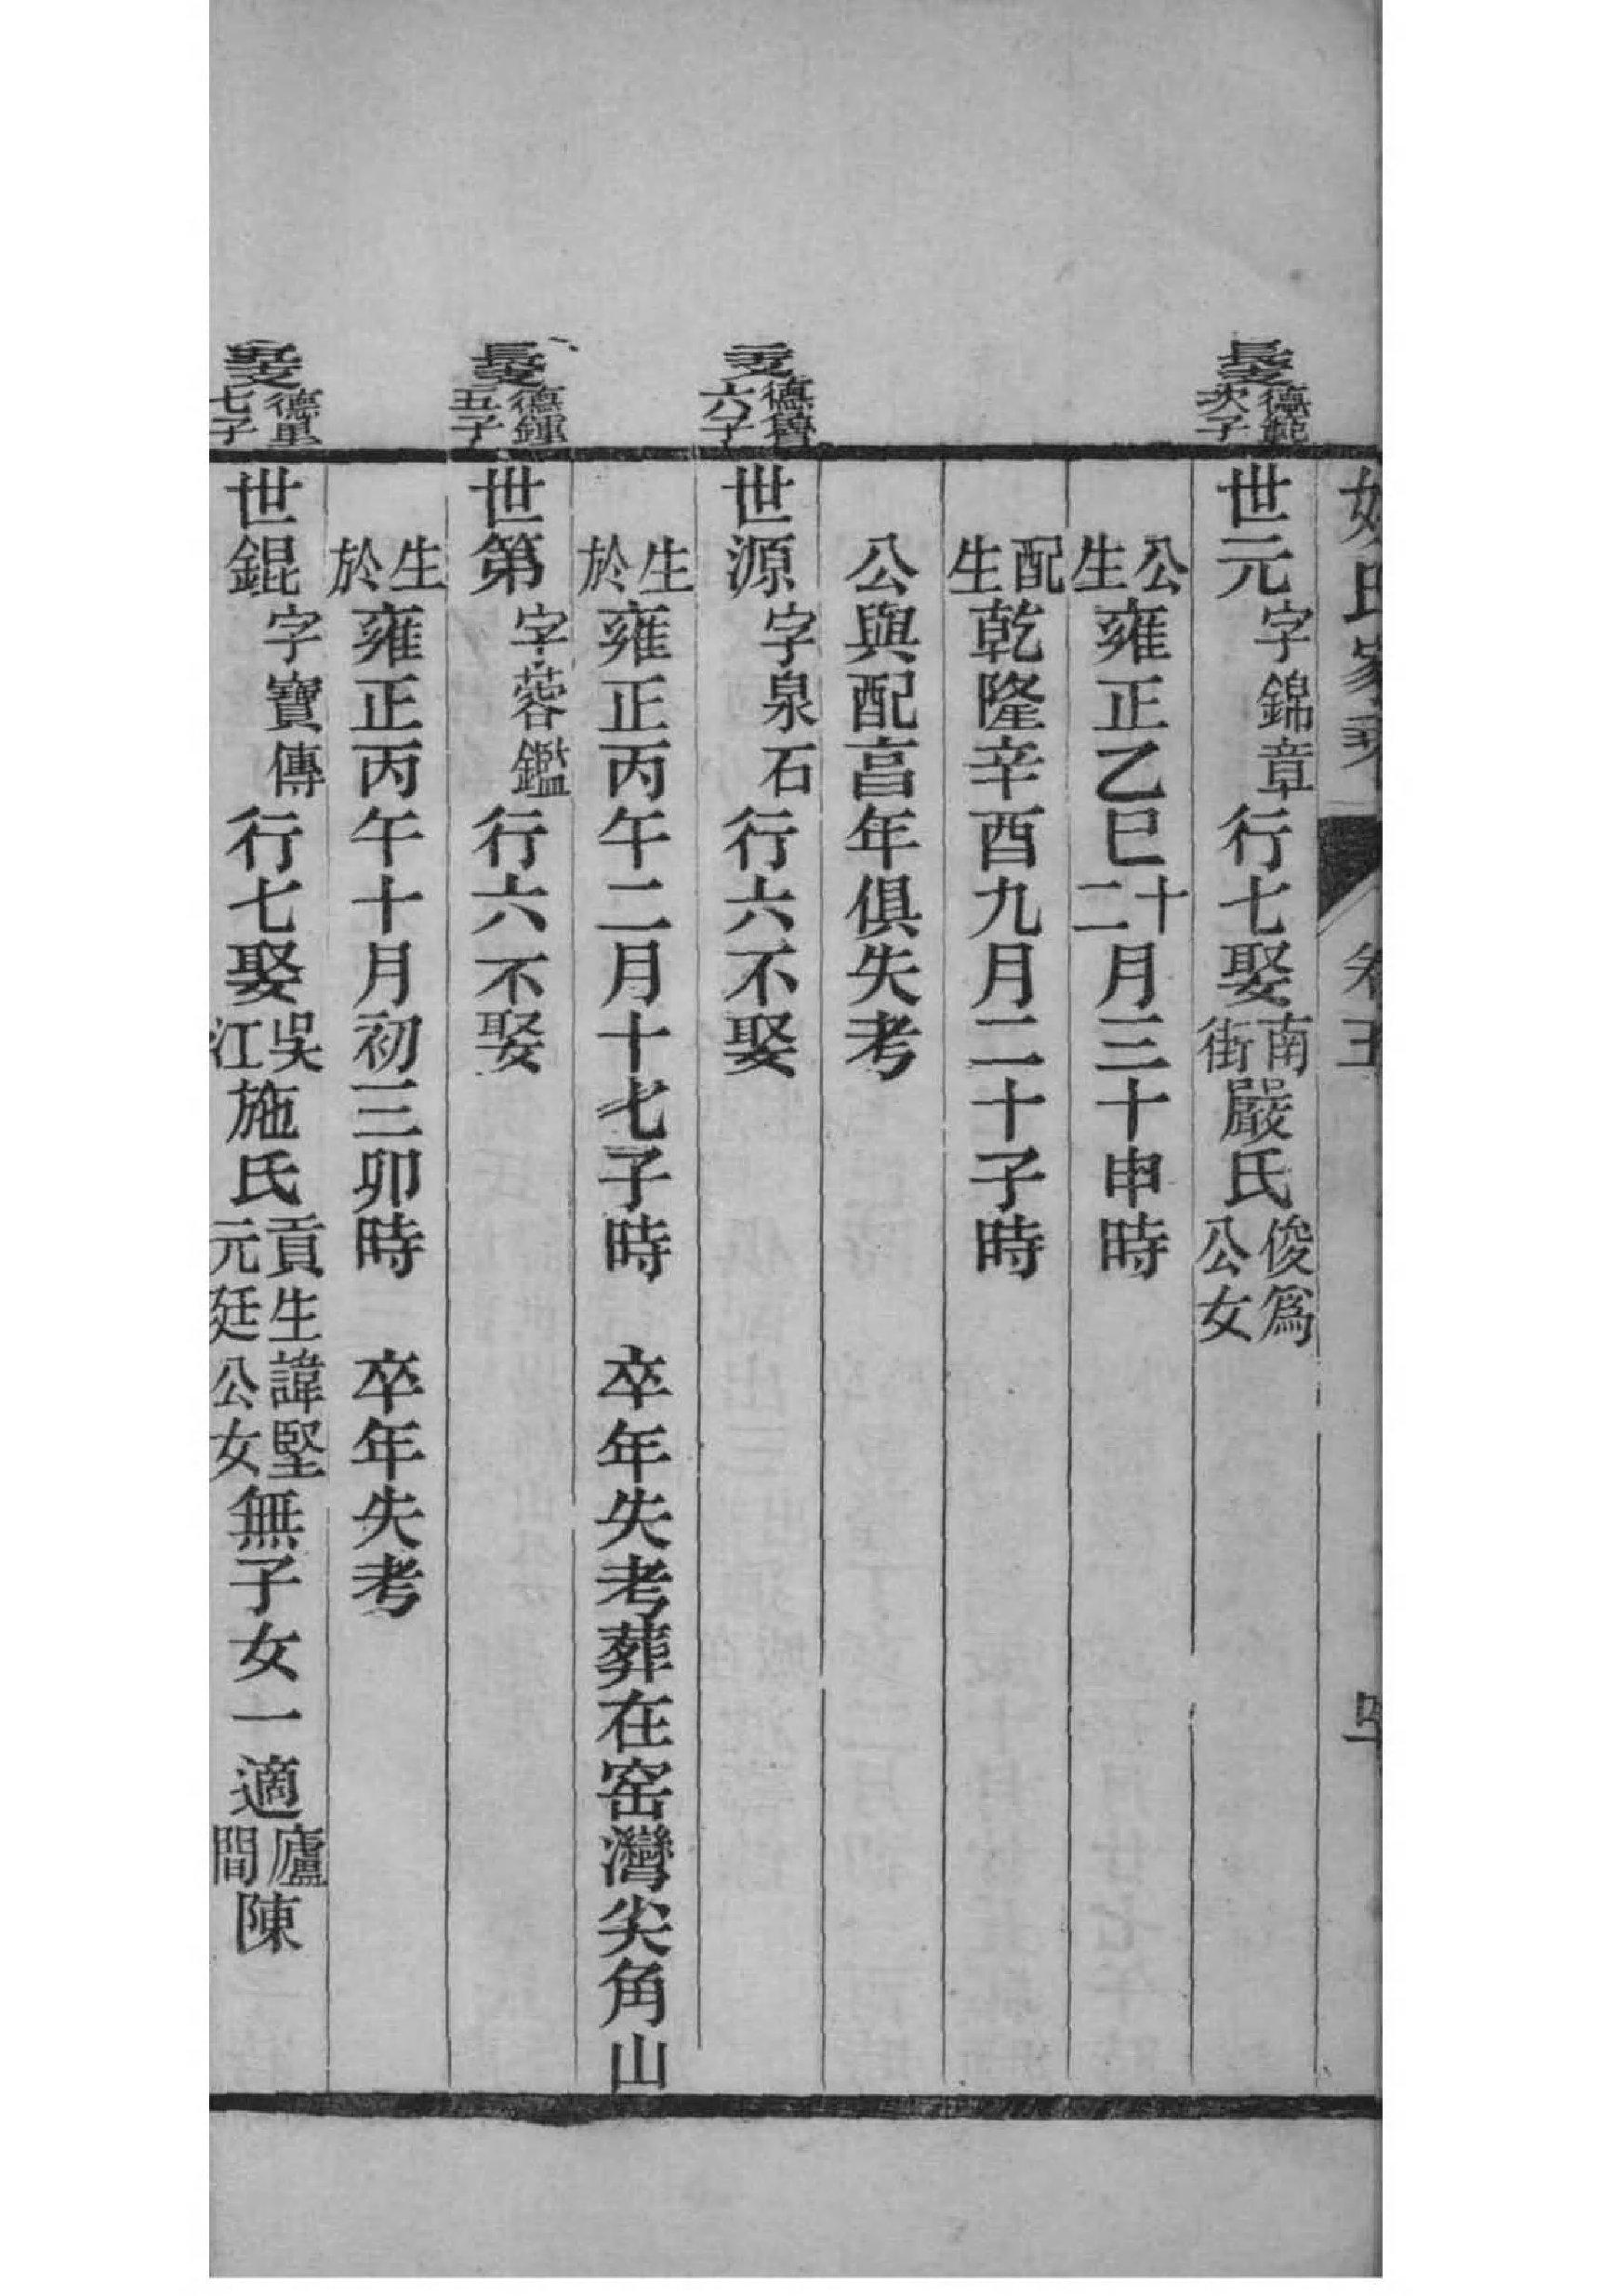 氏家乘 卷五
長支 德範次子
世元 字錦章 行七娶南街嚴氏俊爲公女
公生雍正乙巳十二月三十申時
配生乾隆辛酉九月二十子時
公與配亯年俱失考
德 六子
世源 字泉石 行六不娶
生於雍正丙午二月十七子時 卒年失考葬在窑灣尖角山
長支 德鍾五子
世第 字蓉鑑 行六不娶
生於雍正丙午十月初三卯時 卒年失考
德星七子
世錕 字寶傳 行七娶吳江施氏貢生諱堅元廷公女無子女一適廬間陳